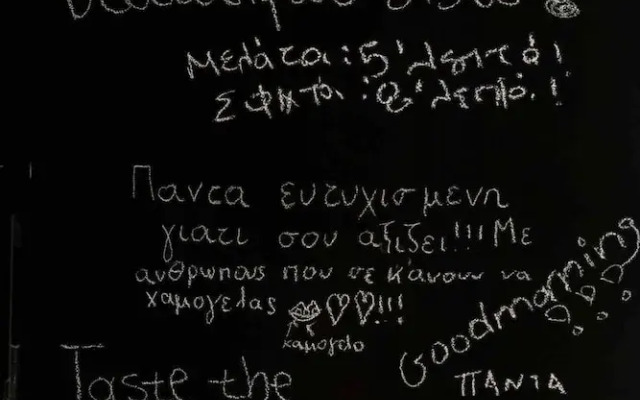 Μελάτα : 5' λεπτά!
Σφικτά : 8' λεπτά.!
Παντα ευτυχισμενη
γιατι σου αξιζει!!! Με
ανθρωπους που σε κάνουν να
χαμογελας ♡♡!!!
χαμογελο
Goodmorning
Taste the
ΠΑΝΤΑ